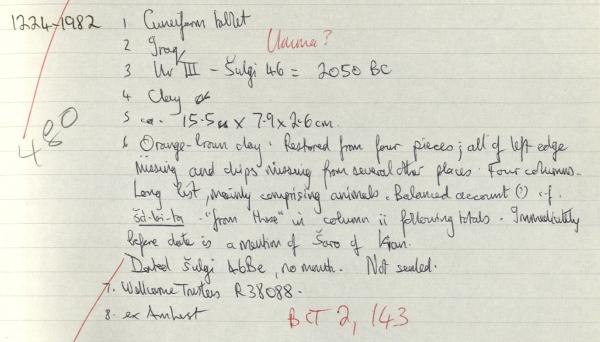 1224-1982
1 Cuneiform tablet
2 Iraq Umma?
3 Ur III - Šulgi 46 = 2050 BC
4 Clay
5 ca. 15.5 x 7.9 x 2.6 cm.
6 Orange-brown clay. Restored from four pieces; all of left edge
missing and chips missing from several other places. Four columns.
Long list, mainly comprising animals. Balanced account (?) cf.
šà-bi-ta . "from these" in column ii following totals. Immediately
before date is a mention of Šara of
Dated Šulgi 46Be, no month. Not sealed.
7. Wellcome Trustees R38088.
8. ex Amherst
BCT 2, 143
480